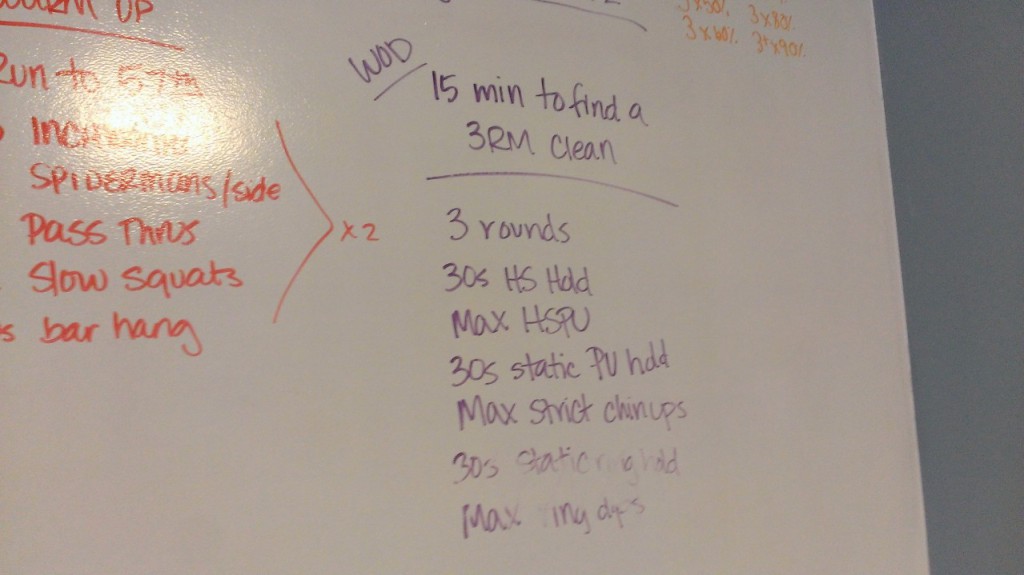 UP
Run to 57th
Spidermans/side
Pass Thrus
Slow squats
bar hang
x2
WOD
15 min to find a
3RM clean
3 rounds
30s HS Hold
Max HSPU
30s static PU hold
Max strict chinups
30s static ring hold
Max ring dips
3x50%
3x80%
3x60%
3+x90%